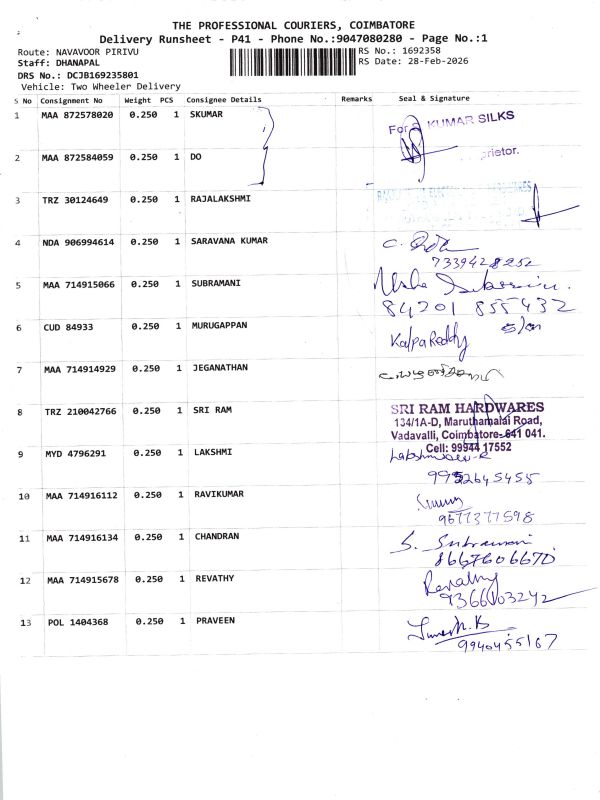 THE PROFESSIONAL COURIERS, COIMBATORE
Delivery Runsheet - P41 - Phone No.:9047080280 - Page No.:1
Route: NAVAVOOR PIRIVU RS No.: 1692358
Staff: DHANAPAL RS Date: 28-Feb-2026
DRS No.: DCJB169235801
Vehicle: Two Wheeler Delivery
S No Consignment No Weight PCS Consignee Details Remarks Seal & Signature
1 MAA 872578020 0.250 1 SKUMAR
For KUMAR SILKS
2 MAA 872584059 0.250 1 DO
prietor.
3 TRZ 30124649 0.250 1 RAJALAKSHMI
4 NDA 906994614 0.250 1 SARAVANA KUMAR
7339428252
5 MAA 714915066 0.250 1 SUBRAMANI
84201 855432
6 CUD 84933 0.250 1 MURUGAPPAN
KalpaReddy
7 MAA 714914929 0.250 1 JEGANATHAN
8 TRZ 210042766 0.250 1 SRI RAM
SRI RAM HARDWARES
134/1A-D, Maruthamalai Road,
Vadavalli, Coimbatore-641 041.
Cell: 99944 17552
9 MYD 4796291 0.250 1 LAKSHMI
9952645455
10 MAA 714916112 0.250 1 RAVIKUMAR
9677377598
11 MAA 714916134 0.250 1 CHANDRAN
8667606670
12 MAA 714915678 0.250 1 REVATHY
Revathy
9366103242
13 POL 1404368 0.250 1 PRAVEEN
9940455167